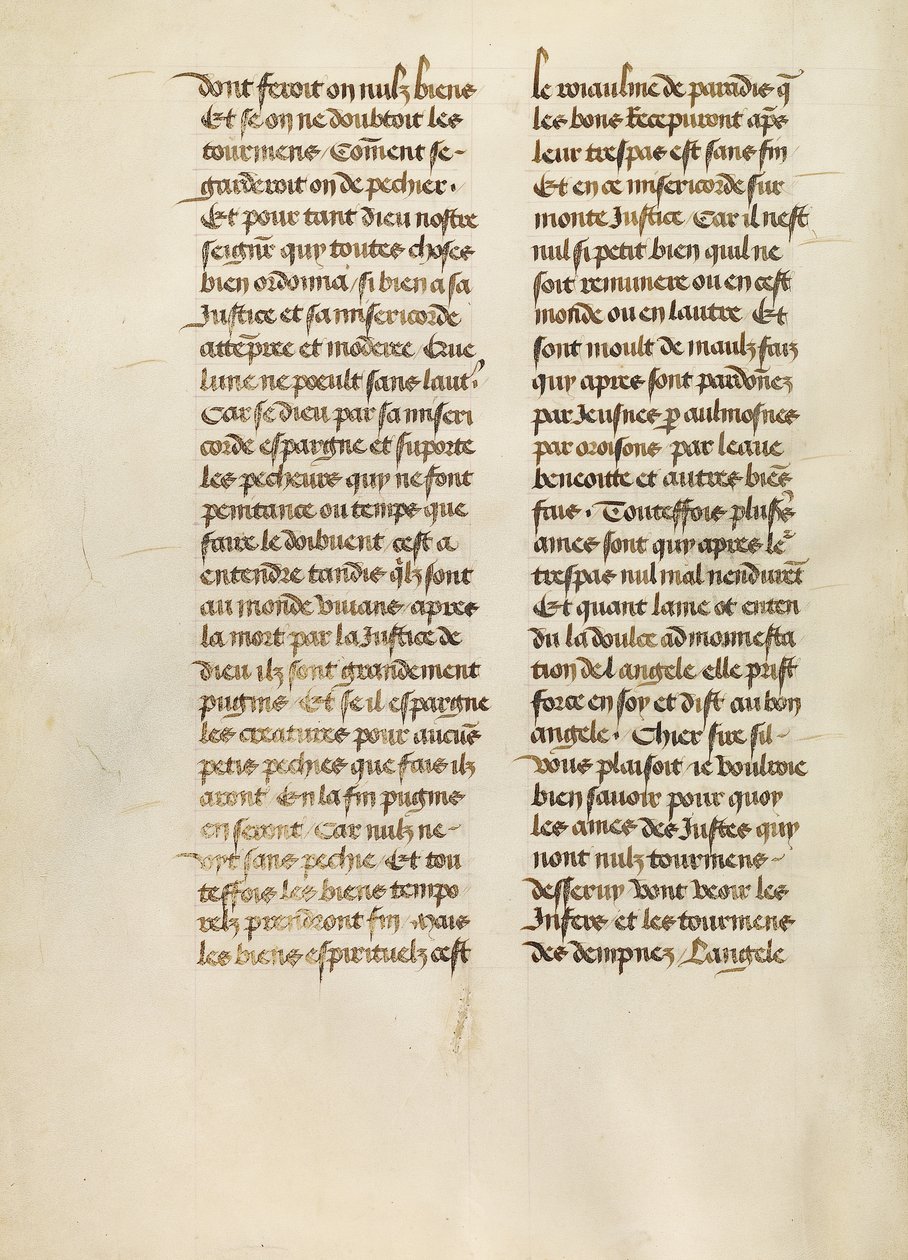 dont feroit on nulz biens
Et se on ne doubtoit les
tourmens / Com̃ent se-
garderoit on de pechier .
Et pour tant dieu nostre
seign̄r quy toutes choses
bien ordonna / si bien a sa
Justice et sa misericorde
attēpree et moderee / Que
lune ne poeult sans laut᾿.
Car se dieu par sa miseri
corde espargne et suporte
les pecheurs quy ne font
penitance ou temps que
faire le doibuent / cest a
entendre tandis q̓lz sont
au monde viuans / apres
la mort par la Justice de
dieu ilz sont grandement
pugnis / Et se il espargne
les creatures pour aucūs
petis pechies que fais ilz
aront / En la fin pugnis
en seront / Car nulz ne-
vyt sans pechie / Et tou
teffois les biens tempo
relz prendront fin / Mais
les biens espirituelz cest
le roiaulme de paradis q̄
les bons Recepuront ap̄s
leur trespas est sans fin /
Et en ce misericorde sur
monte Justice / Car il nest
nul si petit bien quil ne
soit remunere ou en cest
monde ou en lautre Et
sont moult de maulz faiz
quy apres sont pardon̄ez
par Jeusnes ꝑ aulmosnes
par oroisons par leaue
benoitte et autres biēs
fais . Touteffois plusrs̄
ames sont quy apres le᷑
trespas nul mal nenduret̄
Et quant lame ot enten
du la doulce admonnesta
tion de langele elle prist
force en soy et dist au bon
angele . Chier sire sil-
vous plaisoit ie vouldroie
bien sauoir pour quoy
les ames des Justes quy
nont nulz tourmens -
desseruy vont veoir les
Infers / et les tourmens
des dempnez / Langele